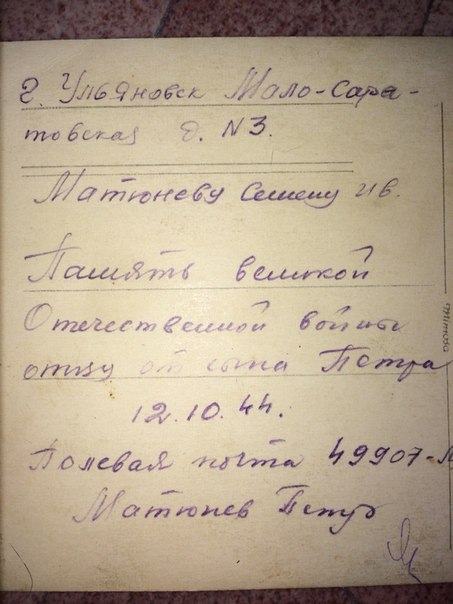 г. Ульяновск Мало-Сара-
товская д. N 3.
Матюневу Семену Ив.
Память великой
Отечественной войны
отцу от сына Петра
12.10.44.
Полевая почта 49907-
Матюнев Петр